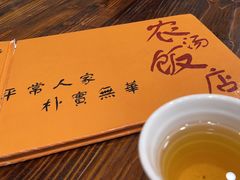 农汤饭店
平常人家
朴實無華